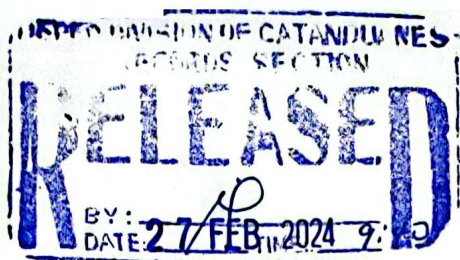 DIVISION OF CATANDUANES
RECORDS SECTION
RELEASED
BY:
DATE: 27 FEB 2024 TIME